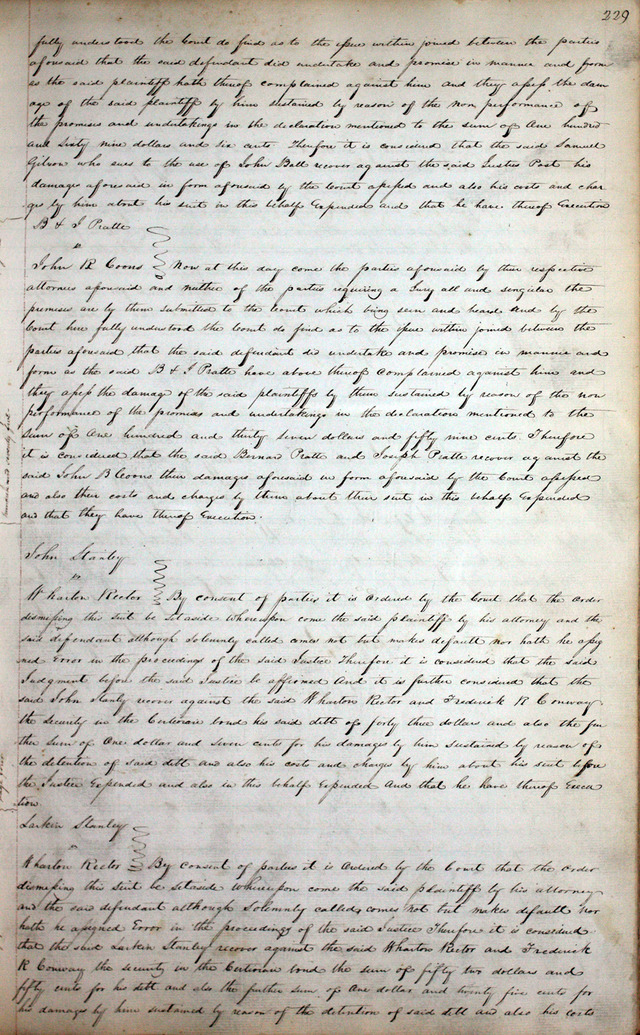 229
fully understood the Court do find as to the issue within joined between the parties
aforesaid that the said defendant did undertake and promise in manner and form
as the said plaintiff hath thereof complained against him and they assess the dam
age of the said plaintiff by him sustained by reason of the non performance of
the promises and undertakings in the declaration mentioned to the sum of One hundred
and Sixty nine dollars and Six cents Therefore it is considered that the said Samuel
who sues to the use of John Ball recover against the said Justus Post his
damages aforesaid in form aforesaid by the Court assessed and also his costs and char
ges by him about his suit in this behalf Expended and that he have thereof Execution
B & J Pratte
vs
John B Coons Now at this day come the parties aforesaid by their respective
attornies aforesaid and neither of the parties requiring a Jury all and singular the
premises are by them submitted to the Court which being seen and heard And by the
Court here fully understood the Court do find as to the issue within joined between the
parties aforesaid that the said defendant did undertake and promise in manner and
form as the said B & J Pratte have above thereof Complained against him and
they assess the damage of the said plaintiffs by them sustained by reason of the non
performance of the promises and undertakings in the declaration mentioned to the
Sum of One hundred and thirty seven dollars and fifty nine cents Therefore
it is considered that the said Bernard Pratte and Joseph Pratte recover against the
said John B Coons their damages aforesaid in form aforesaid by the Court assessed
and also their costs and charges by them about their suit in this behalf Expended
and that they have thereof Execution.
John Stanley
vs
Wharton Rector By consent of parties it is Ordered by the Court that the order
dismissing this suit be Set aside Whereupon come the said plaintiff by his attorney and the
said defendant although Solemnly called comes not but makes default nor hath he assig
ned Error in the proceedings of the said Justice Therefore it is considered that the said
Judgment before the said Justice be affirmed And it is further considered that the
said John Stanly recover against the said Wharton Rector and Frederick R Conway
the Security in the Certiorari bond his said debt of forty three dollars and also the fur
ther sum of One dollar and Seven cents for his damages by him Sustained by reason of
the detention of said debt and also his costs and charges by him about his suit before
the Justice Expended and also in this behalf Expended And that he have thereof Execu
tion.
Larkin Stanley
vs
Wharton Rector By Consent of parties it is Ordered by the Court that the order
dismissing this Suit be Setaside Whereupon come the said plaintiff by his attorney
and the said defendant although Solemnly called comes not but makes default nor
hath he assigned Error in the proceedings of the said Justice Therefore it is considered
that the said Larkin Stanley recover against the said Wharton Rector and Frederick
R Conway the security in the Certiorari bond the sum of fifty two dollars and
fifty cents for his debt and also the further sum of One dollar and twenty five cents for
his damages by him sustained by reason of the detention of said debt and also his costs